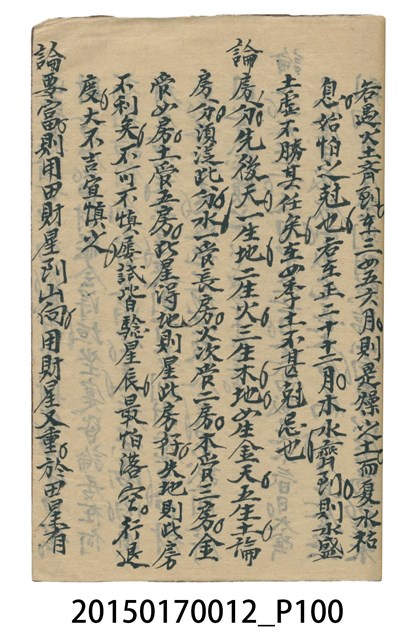 若遇火土齊到在三四五六月則是燥以土而夏水枯
息始怕之尅也若在正二十十二月木水齊到則水盛
土虛不勝其任矣在四季土不甚尅忌也
論房分先後天一生地二生火三生木地四生金天五生土論
房分須從此分水一管長房火次管二房木管三房金
管四房土管五房此星得地則星此房好失地則此房
不利矣不可不慎屢試皆驗星辰最怕落空行退
度大不吉宜慎之
論要富則用田財星到山向用財星又重於田星有
20150170012_P100